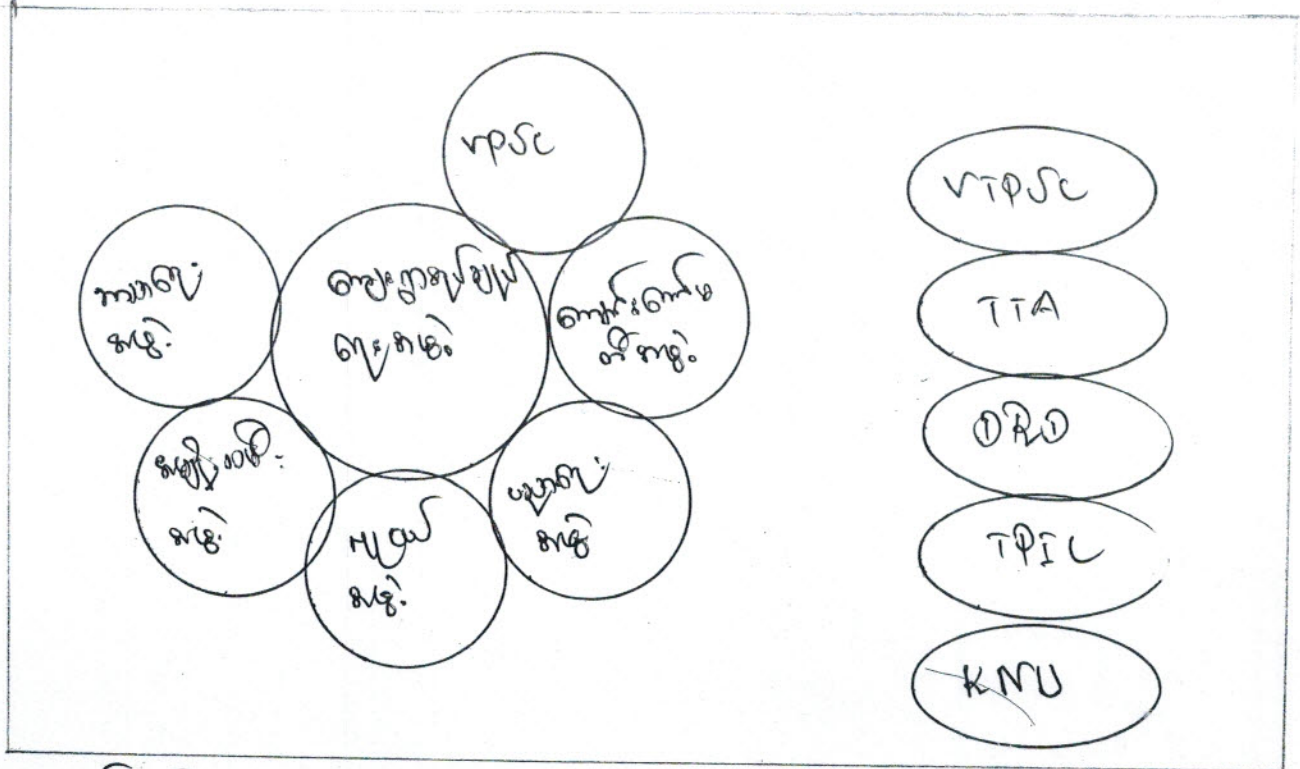 VPSC
ကျေးရွာအုပ်ချုပ်
ရေးအဖွဲ့
ဘာသာရေး
အဖွဲ့
ကျောင်းကော်မ
တီအဖွဲ့
အမျိုးသမီး
အဖွဲ့
လူငယ်
အဖွဲ့
ပညာရေး
အဖွဲ့
VTPSC
TTA
DRD
TPIC
KNU